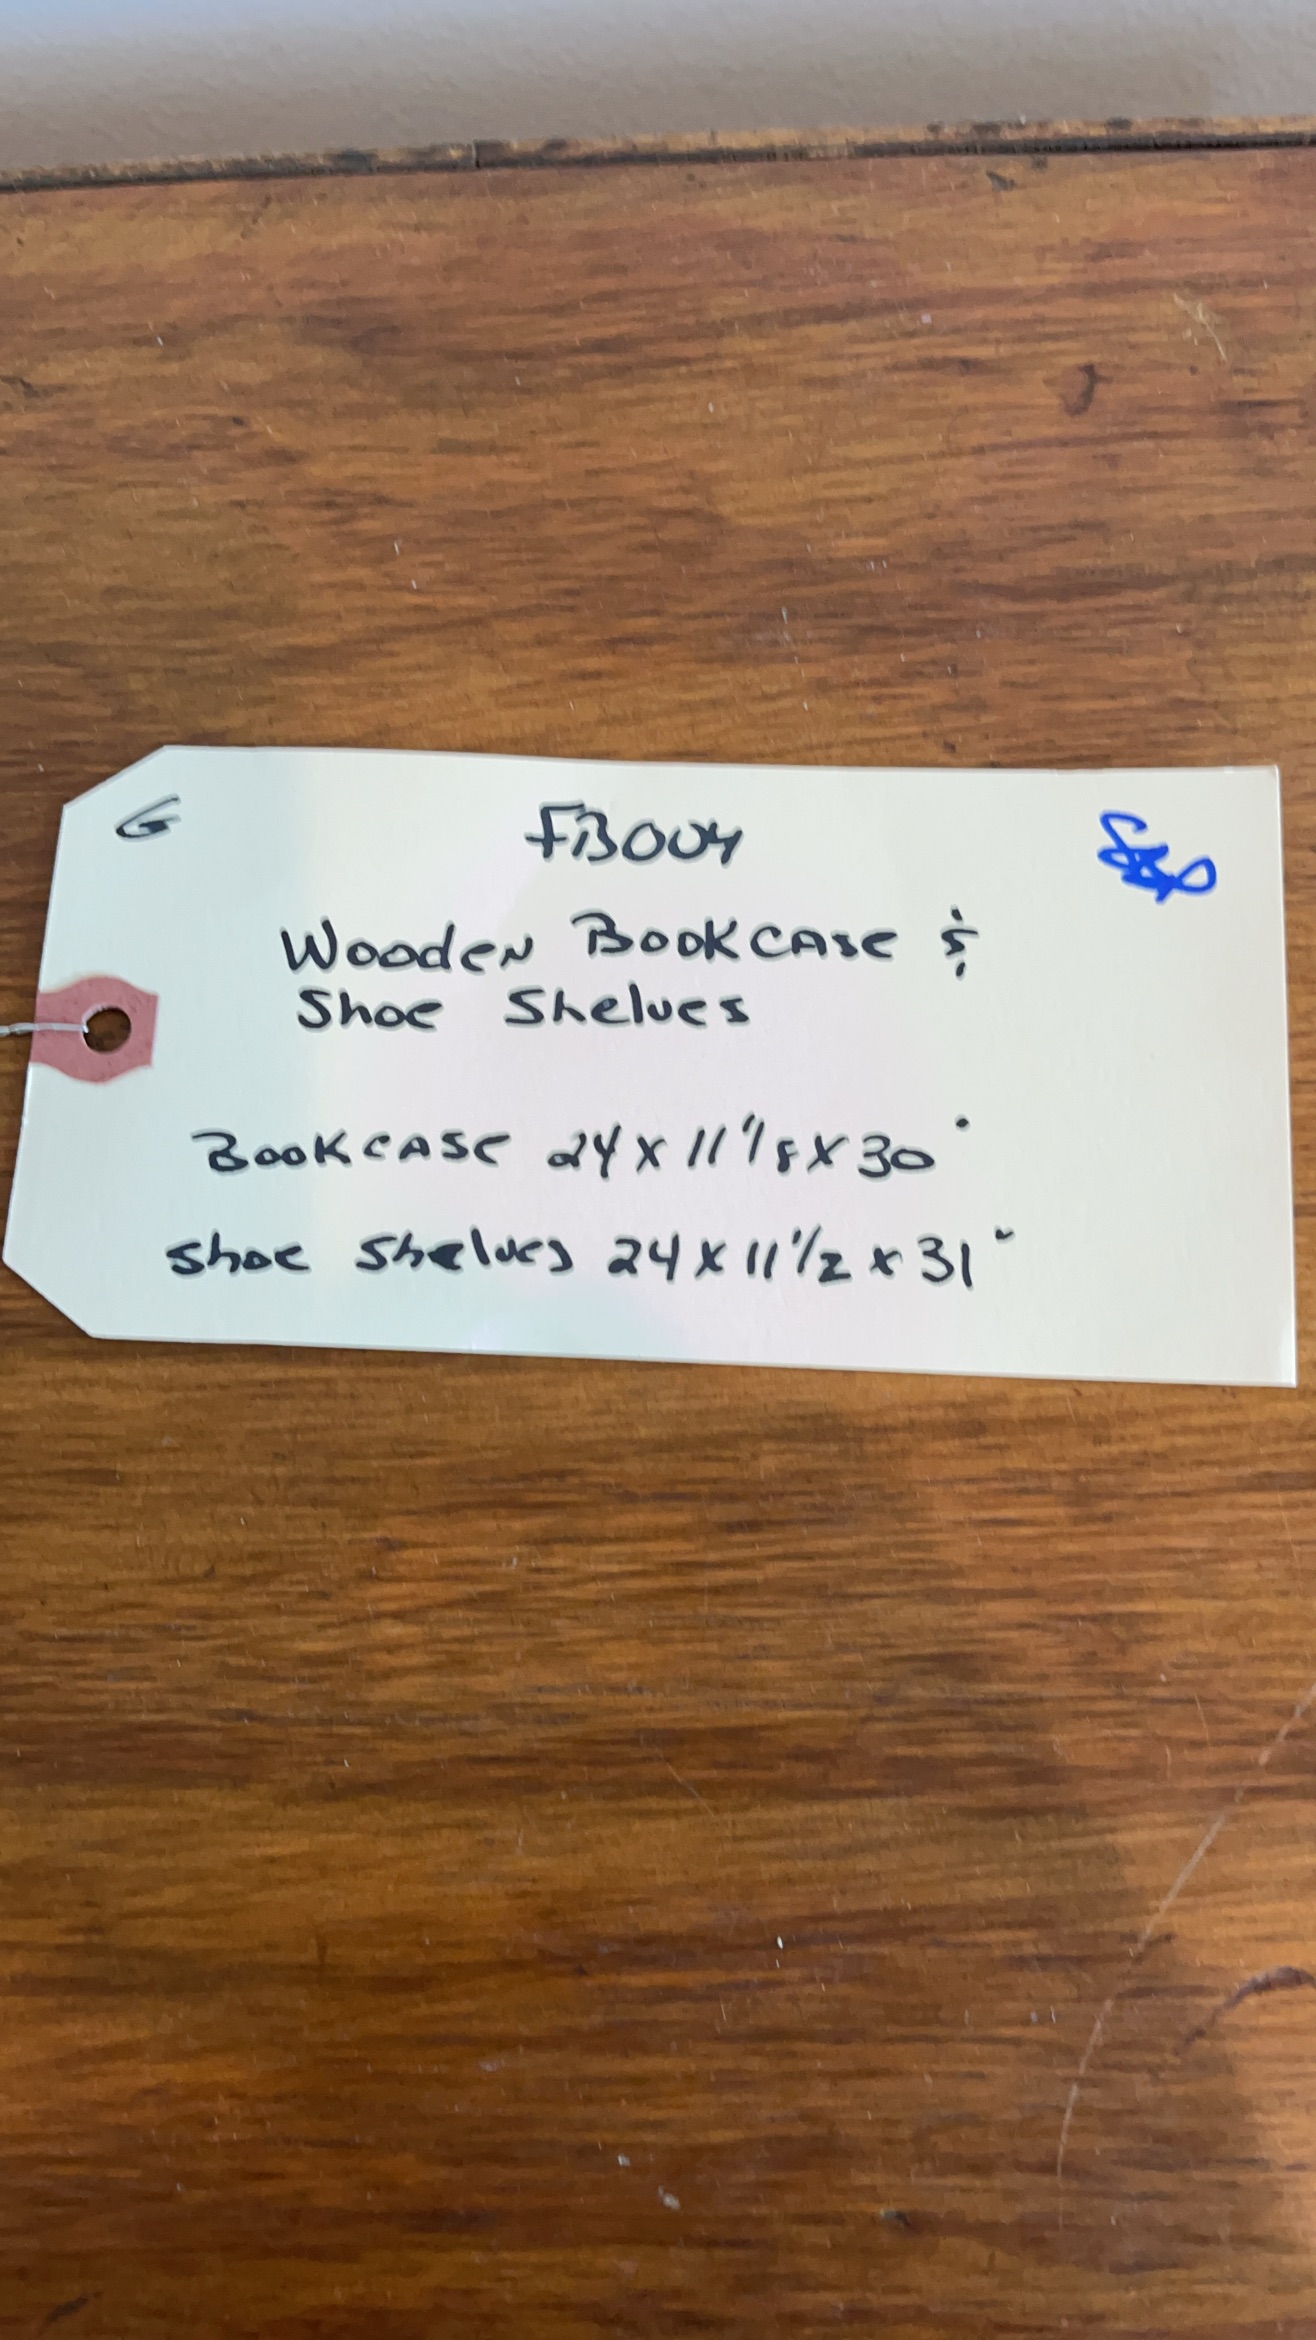 G
FB004
Wooden Bookcase &
Shoe Shelves
Bookcase 24 x 11 1/8 x 30"
Shoe Shelves 24 x 11 1/2 x 31"